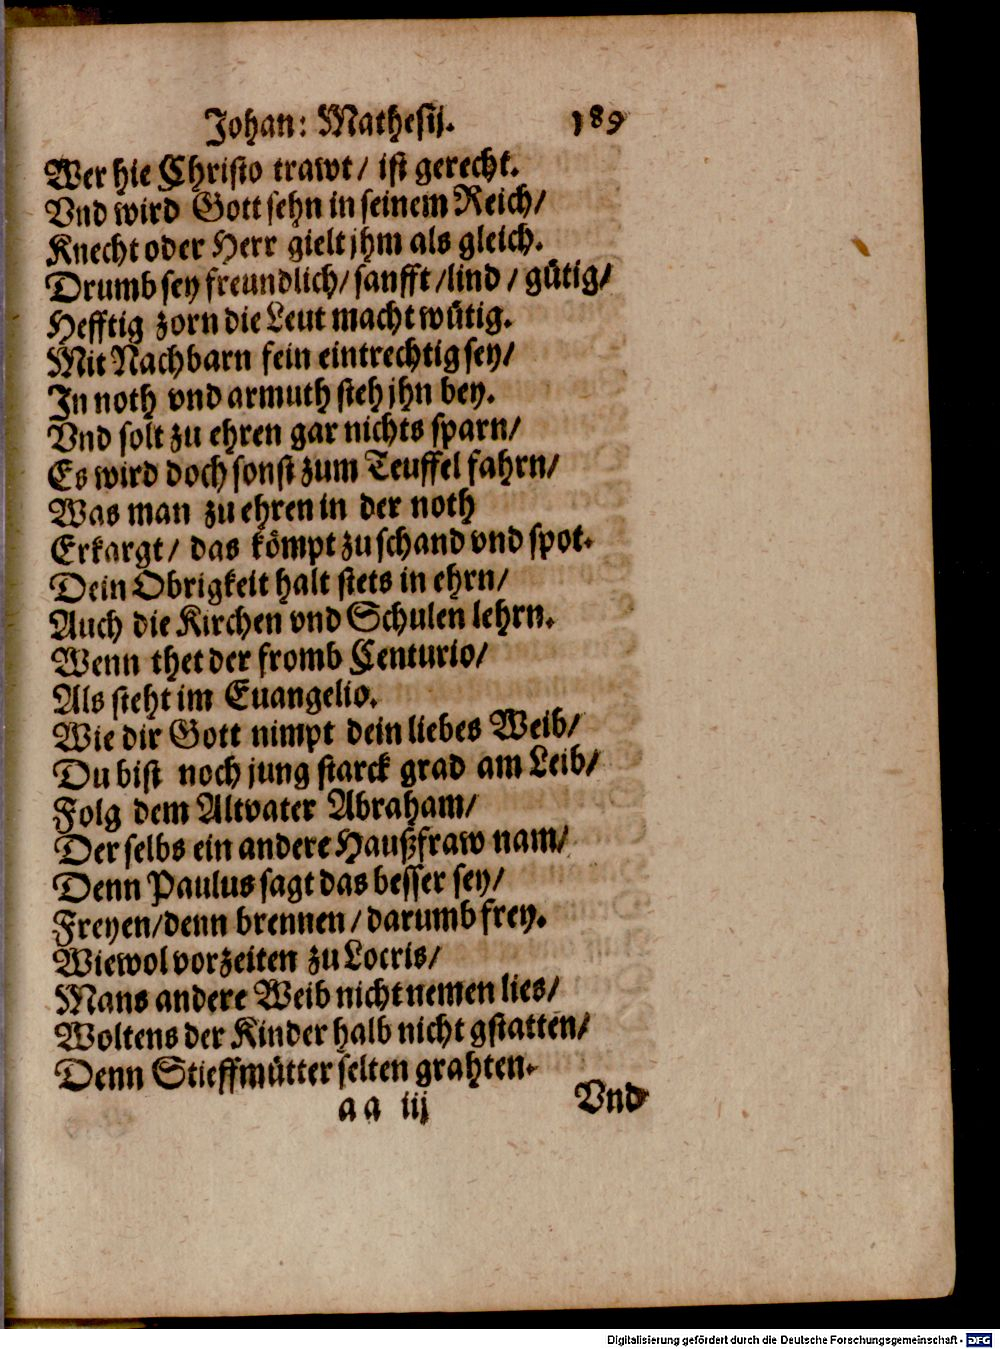 Johan: Mathesij. 189
Wer hie Christo trawt/ ist gerecht.
Vnd wird Gott sehn in seinem Reich/
Knecht oder Herr gielt jhm als gleich.
Drumb sey freundlich/ sanfft/ lind/ gütig/
Hefftig zorn die Leut macht wütig.
Mit Nachbarn fein eintrechtig sey/
In noth vnd armuth steh jhn bey.
Vnd solt zu ehren gar nichts sparn/
Es wird doch sonst zum Teuffel fahrn/
Was man zu ehren in der noth
Erkargt/ das kömpt zu schand vnd spot.
Dein Obrigkeit halt stets in ehrn/
Auch die Kirchen vnd Schulen lehrn.
Wenn thet der fromb Centurio/
Als steht im Euangelio.
Wie dir Gott nimpt dein liebes Weib/
Du bist noch jung starck grad am Leib/
Folg dem Altvater Abraham/
Der selbs ein andere Haußfraw nam/
Denn Paulus sagt das besser sey/
Freyen/ denn brennen/ darumb frey.
Wiewol vorzeiten zu Locris/
Mans andere Weib nicht nemen lies/
Woltens der Kinder halb nicht gstatten/
Denn Stieffmütter selten grahten.
aa iij Vnd
Digitalisierung gefördert durch die Deutsche Forschungsgemeinschaft - DFG